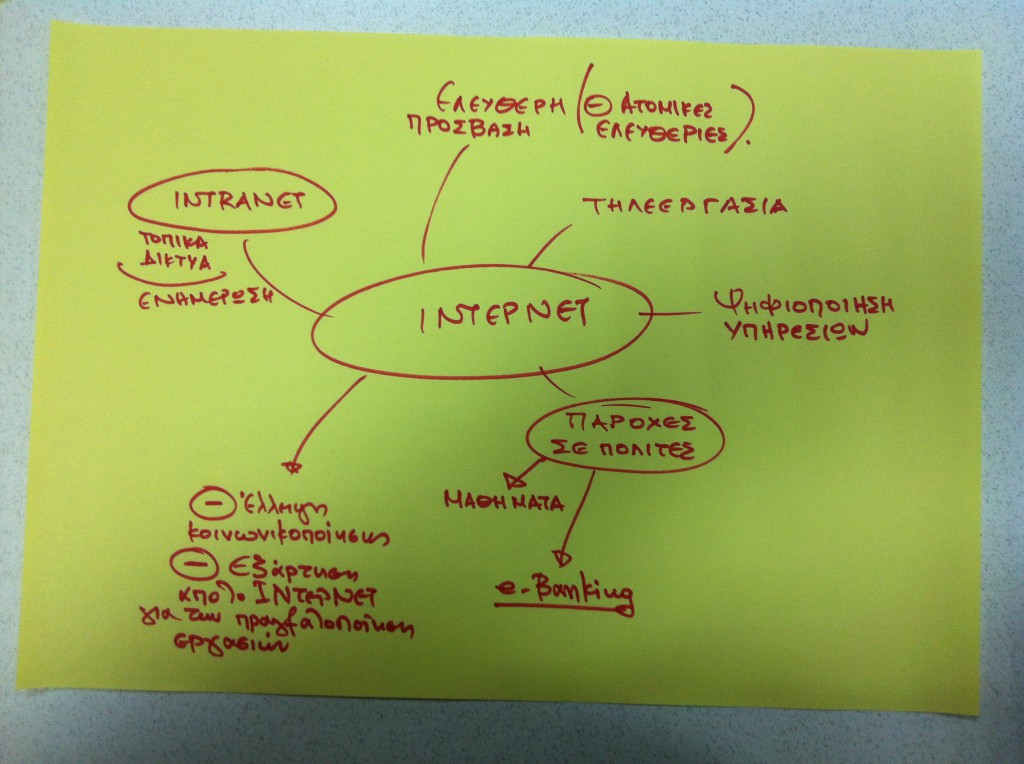 ΕΛΕΥΘΕΡΗ
ΠΡΟΣΒΑΣΗ
(⊖ ΑΤΟΜΙΚΕΣ
ΕΛΕΥΘΕΡΙΕΣ).
INTRANET
ΤΟΠΙΚΑ
ΔΙΚΤΥΑ
ΕΝΗΜΕΡΩΣΗ
ΤΗΛΕΕΡΓΑΣΙΑ
ΙΝΤΕΡΝΕΤ
ΨΗΦΙΟΠΟΙΗΣΗ
ΥΠΗΡΕΣΙΩΝ
ΠΑΡΟΧΕΣ
ΣΕ ΠΟΛΙΤΕΣ
ΜΑΘΗΜΑΤΑ
e-Banking
⊖ Έλλειψη
κοινωνικοποίησης
⊖ Εξάρτηση
από το ΙΝΤΕΡΝΕΤ
για την πραγματοποίηση
εργασιών